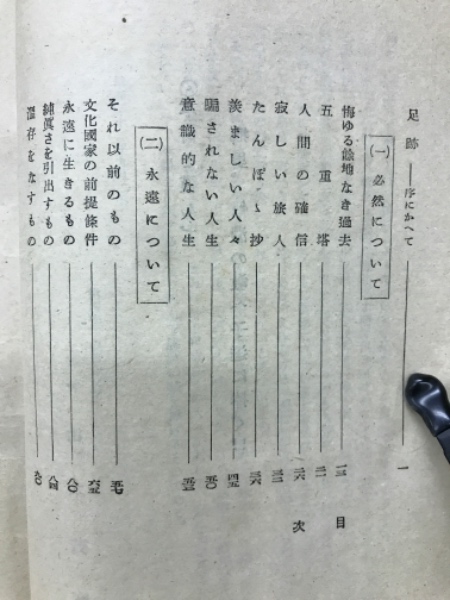 足跡――序にかへて――一
(一) 必然について
悔ゆる餘地なき過去――一三
五重塔――二一
人間の確信――二六
寂しい旅人――三二
たんぽゝ抄――三六
羨ましい人々――四五
賜されない人生――五〇
意識的な人生――五三
(二) 永遠について
それ以前のもの――五七
文化國家の前提條件――六五
永遠に生きるもの――八〇
純眞さを引出すもの――八四
温存をなすもの――九〇
目次